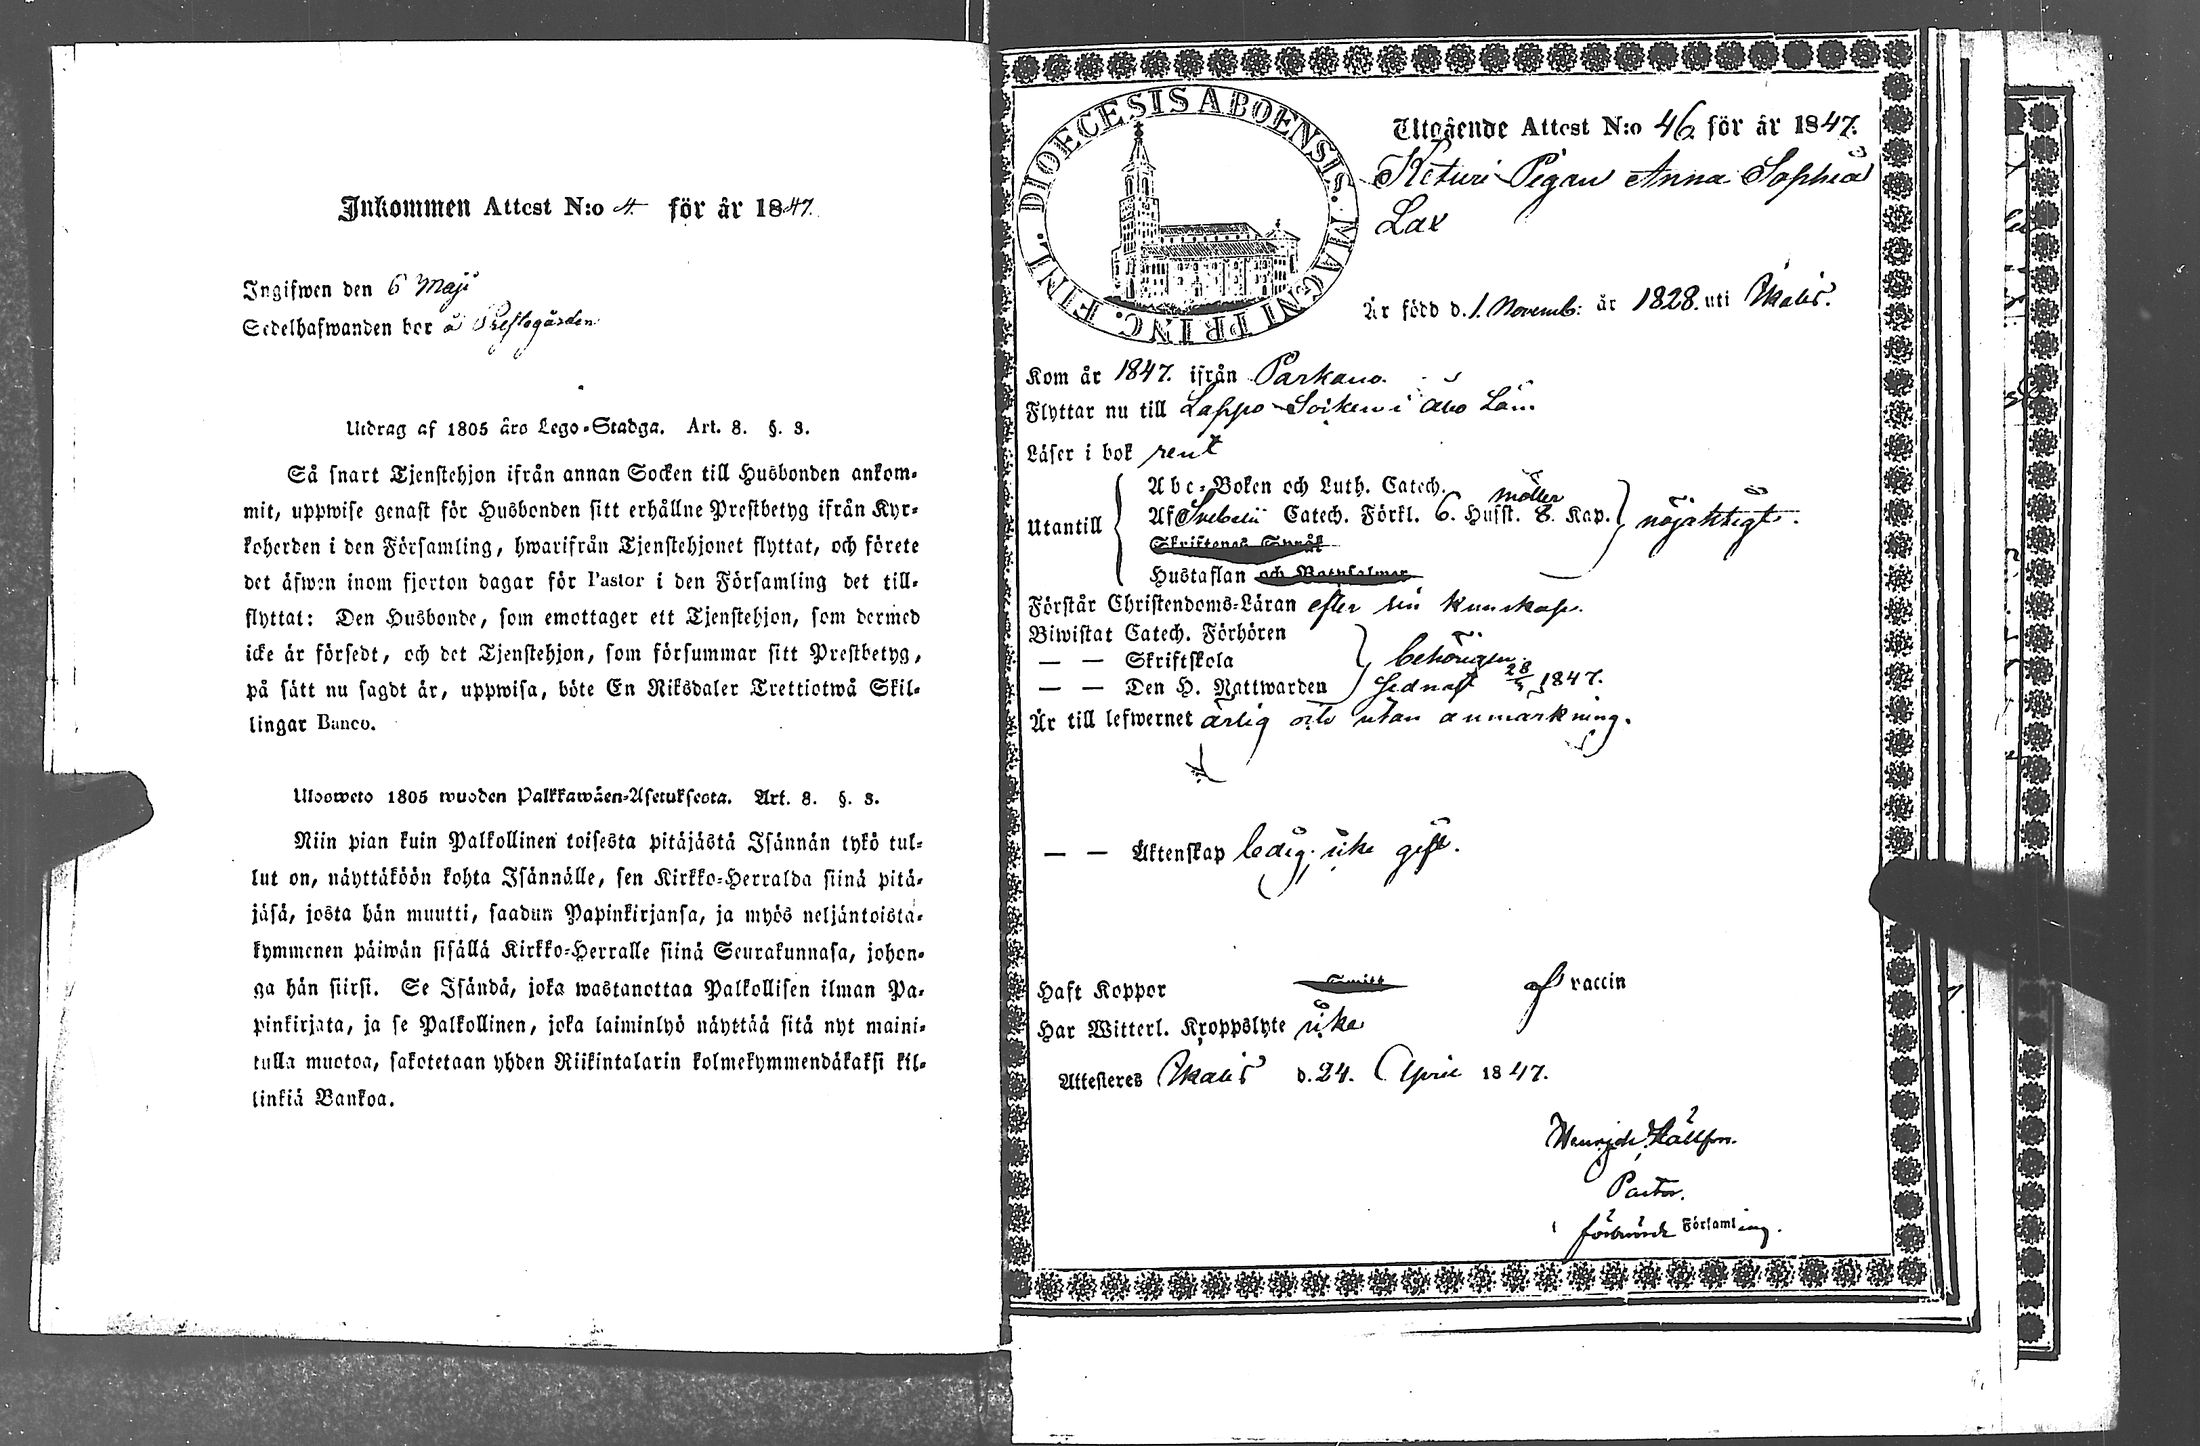 Inkommen Attest N:o 4. för år 1847.
Ingifwen den 6 Maji
Sedelhafwanden bor å Prestegården
Utdrag af 1805 års Lego-Stadga. Art. 8. §. 3.
Så snart Tjenstehjon ifrån annan Socken till Husbonden ankom-
mit, uppwise genast för Husbonden sitt erhållne Prestbetyg ifrån Kyr-
koherden i den Församling, hwarifrån Tjenstehjonet flyttat, och förete
det äfwen inom fjorton dagar för Pastor i den Församling det till-
flyttat: Den Husbonde, som emottager ett Tjenstehjon, som dermed
icke är försedt, och det Tjenstehjon, som försummar sitt Prestbetyg,
på sätt nu sagdt är, uppwisa, böte En Riksdaler Trettiotwå Skil-
lingar Banco.
Ulosweto 1805 wuoden Palkkawäen-Asetuksesta. Art. 8. §. 3.
Niin pian kuin Palkollinen toisesta pitäjästä Isännän tykö tul-
lut on, näyttäköön kohta Isännälle, sen Kirkko-Herralda siinä pitä-
jäsä, josta hän muutti, saadun Papinkirjansa, ja myös neljäntoista-
kymmenen päiwän sisällä Kirkko-Herralle siinä Seurakunnasa, johon-
ga hän siirsi. Se Isändä, joka wastanottaa Palkollisen ilman Pa-
pinkirjata, ja se Palkollinen, joka laiminlyö näyttää sitä nyt maini-
tulla muotoa, sakotetaan yhden Riikintalarin kolmekymmendäkaksi kil-
linkiä Bankoa.
DIOECESIS ABOENSIS. MAGNI PRINC. FINL.
Utgående Attest N:o 46 för år 1847.
Pigan Anna Sophia
Lax
Är född d. 1. Novemb: år 1828. uti Ikalis.
Kom år 1847. ifrån Parkano.
Flyttar nu till Lappo Socken i Åbo Län.
Läser i bok rent
Utantill
Abc-Boken och Luth. Catech.
Af Svebelii Catech. Förkl. 6. Hufst. 8. Kap. nöjaktigt.
Skriftenes Språk
Hustaflan och Botpsalmer
Förstår Christendoms-Läran efter sin kunskap.
Biwistat Catech. Förhören
— — Skriftskola behörigen
— — Den H. Nattwarden sednast 28/3 1847.
Är till lefwernet ärlig och utan anmärkning.
— — Äktenskap ledig; icke gift.
Haft Koppor Smitt af vaccin
Har Witterl. Kroppslyte icke
Attesteres Ikalis d. 24. April 1847.
Pastor.
Församling.